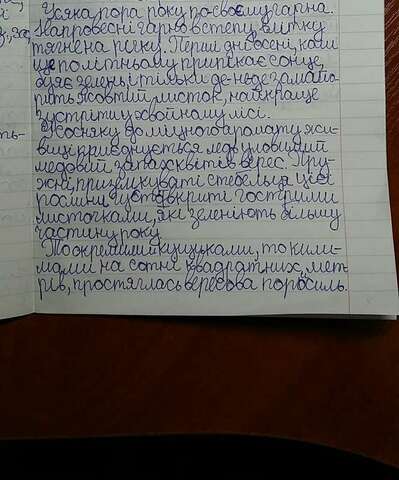 Усяка пора року по-своєму гарна.
Напровесні гарно в степу, влітку
тягне на річку. Перші дні осені, коли
ще по літньому припікає сонце,
буяє зелень і тільки де-не-де замайо-
рить жовтий листок, найкраще
зустріти у хвойному лісі.
У сосняку до міцного аромату жи-
виці приєднується ледь уловимий
медовий запах квітів верес. Пру-
жні, приземкуваті стебельця цієї
рослини густо вкриті гострими
листочками, які зеленіють більшу
частину року.
То окремими кущиками, то кили-
мами на сотні квадратних мет
рів, простяглась вересова поросль.
ть-